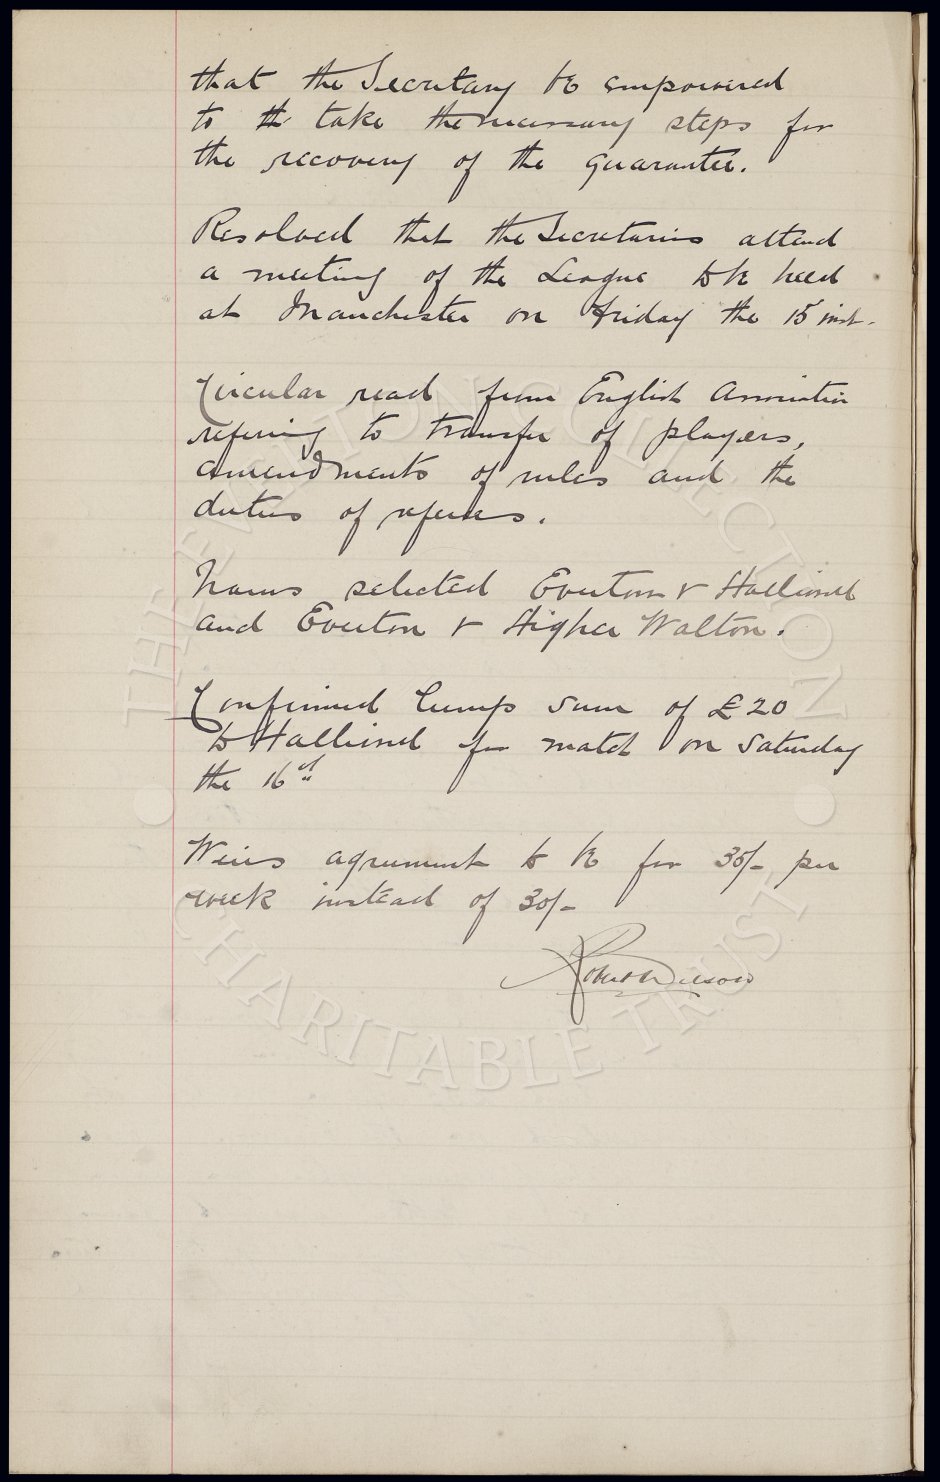 that the Secretary be empowered
to th take the necessary steps for
the recovery of the guarantee.
Resolved that the Secretaries attend
a meeting of the League to be held
at Manchester on Friday the 15 inst.
Circular read from English Association
refering to transfer of players,
amendments of rules and the
duties of referees.
Teams selected Everton v Halliwell
and Everton v Higher Walton.
Confirmed lump sum of £20
to Halliwell for match on Saturday
the 16th
Weirs agreement to be for 35/- per
week instead of 30/-
Robert Wilson
THE EVERTON COLLECTION
CHARITABLE TRUST